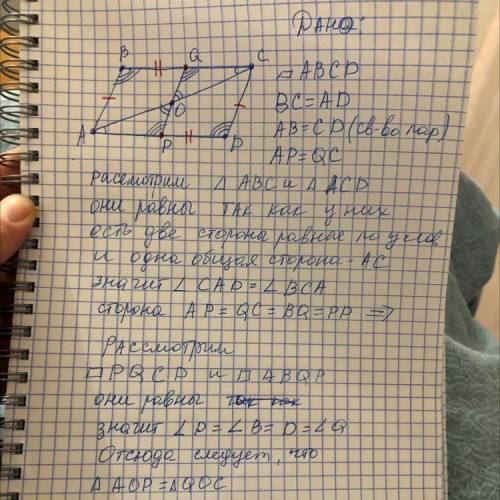 Дано:
B Q C
O
A P D
▱ ABCD
BC=AD
AB=CD (св-во пар)
AP=QC
Рассмотрим △ ABC и △ ACD
они равны так как у них
есть две сторона равные по услов
и одна общая сторона - AC
значит ∠ CAD = ∠ BCA
сторона AP = QC = BQ = PD ⇒
Рассмотрим
▱ PQCD и ▱ ABQP
они равны так как
значит ∠P = ∠B = D = ∠Q
Отсюда следует, что
△ AOP = △QOC